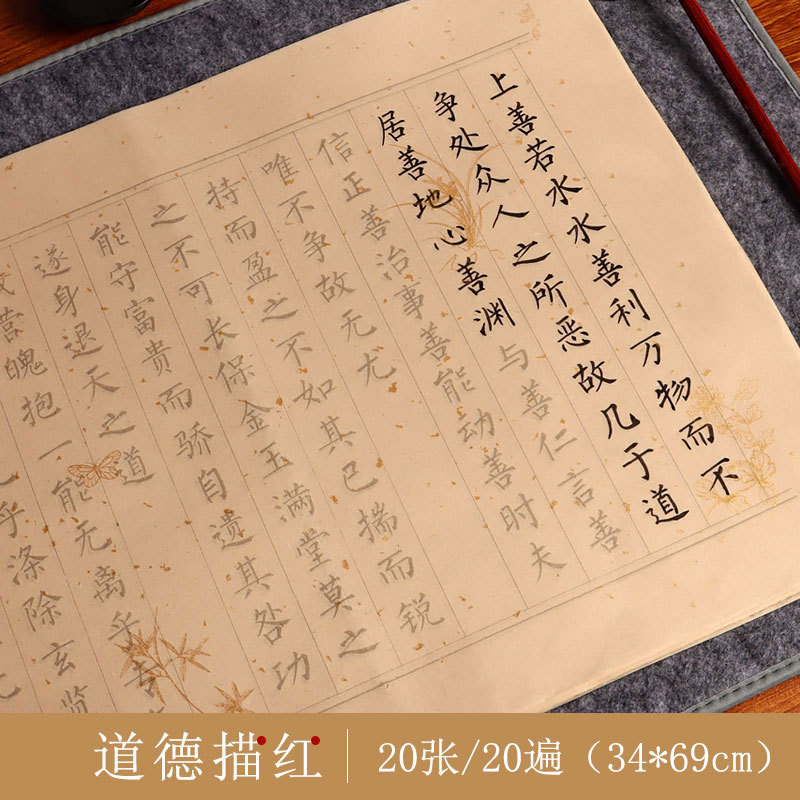 上善若水水善利万物而不
争处众人之所恶故几于道
居善地心善渊与善仁言善
信正善治事善能动善时夫
唯不争故无尤
持而盈之不如其已揣而锐
之不可长保金玉满堂莫之
能守富贵而骄自遗其咎功
遂身退天之道
营魄抱一能无离乎专
乎涤除玄览
道德描红
20张/20遍（34*69cm）